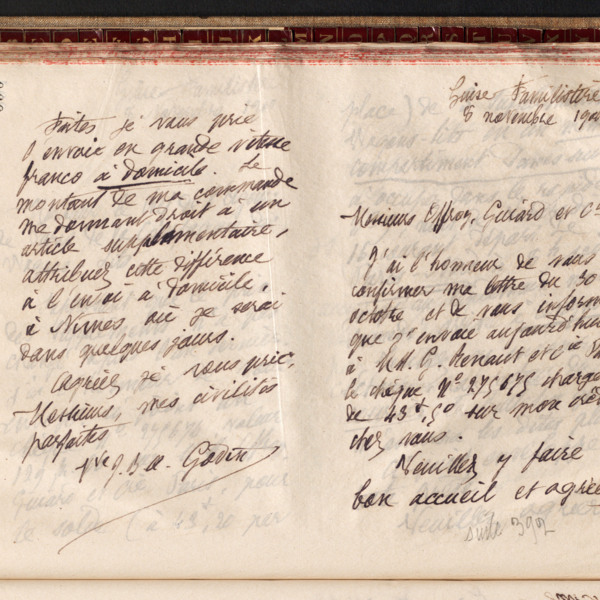 Faites je vous prie
l'envoi en grande vitesse
franco à domicile. Le
montant de ma commande
me donnant droit à un
article supplémentaire,
attribuez cette différence
à l'envoi à domicile,
à Nîmes où je serai
dans quelques jours.
Agréez je vous prie,
Messieurs, mes civilités
parfaites
Vve J. B. A. Godin
Guise Familistère
8 novembre 190
Messieurs Effroy, Guiard et Cie
J'ai l'honneur de vous
confirmer ma lettre du 30
octobre et de vous inform
que j'envoie aujourd'hui
à MM. G. Renault et Cie
le chèque No 275675 charge
de 43f,50 sur mon créd
chez vous.
Veuillez y faire
bon accueil et agrée
suite 392